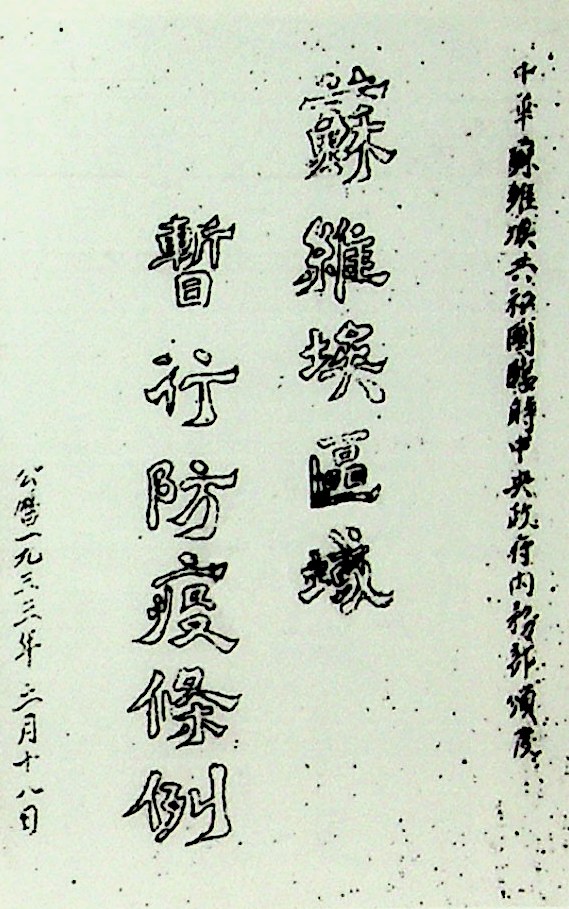 中華蘇維埃共和國臨時中央政府內務部頒度
蘇維埃區域
暫行防疫條例
公曆一九三三年三月十八日